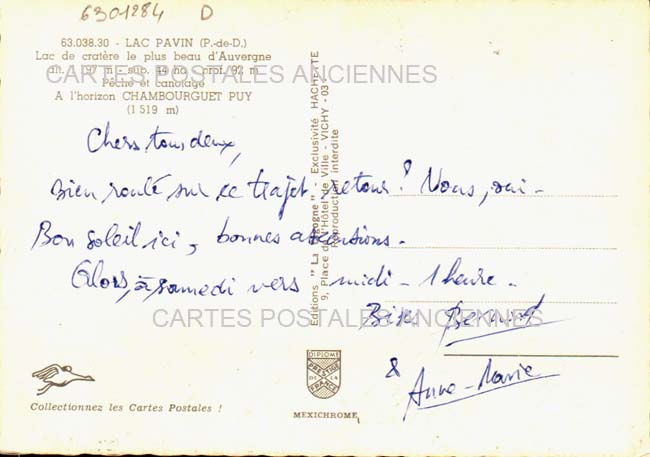 6301284 D
63.038.30 - LAC PAVIN (P.-de-D.)
Lac de cratère le plus beau d'Auvergne
alt. 1 197 m - sup. 44 ha - prof. 92 m
Pêche et canotage
A l'horizon CHAMBOURGUET PUY
(1 519 m)
CARTES POSTALES ANCIENNES
Chers tous deux,
Bien roulé sur ce trajet retour ? Nous, oui -
Bon soleil ici, bonnes ascensions.
Alors, à samedi vers midi - 1 heure.
CARTES POSTALES ANCIENNES
Bises Bernard
& Anne-Marie
Editions "La Cigogne" - Exclusivité HACHETTE
9, Place de l'Hôtel de Ville - VICHY - 03
Reproduction interdite
DIPLOME
PRESTIGE
DE LA
FRANCE
MEXICHROME
Collectionnez les Cartes Postales !